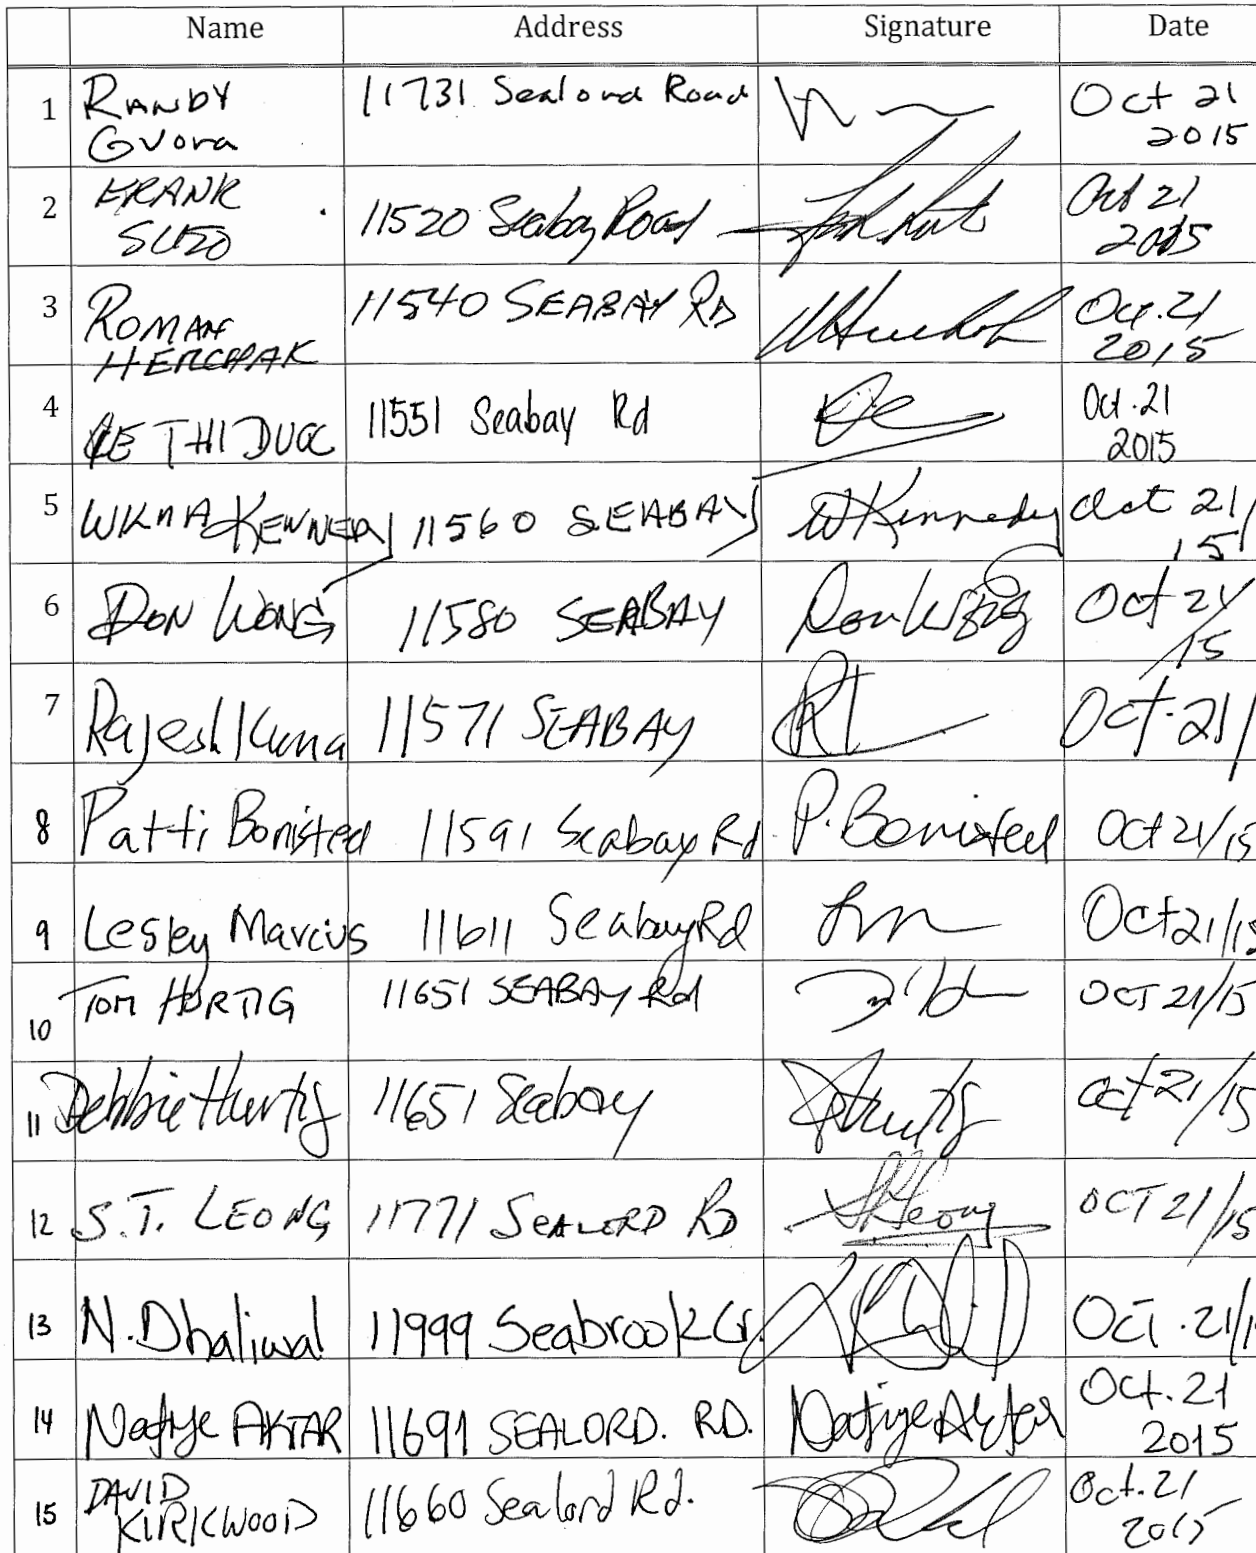 Name Address Signature Date
1 RANDY Gvora 11731 Sealord Road Oct 21 2015
2 FRANK 11520 Seabay Road Oct 21 2015
3 ROMAN HERCHAK 11540 SEABAY RD Oct. 21 2015
4 LE THI DUCC 11551 Seabay Rd Oct. 21 2015
5 KENNEDY 11560 SEABAY WKennedy Oct 21/15
6 DON WONG 11580 SEABAY Don Wong Oct 21/15
7 Rajesh Kuma 11571 SEABAY Oct. 21/
8 Patti Bonisteel 11591 Seabay Rd P. Bonisteel Oct 21/15
9 Lesley Marcius 11611 Seabay Rd Oct 21/15
10 TOM HURTIG 11651 SEABAY Rd OCT 21/15
11 Debbie Hurtig 11651 Seabay DHurtig Oct 21/15
12 S.T. LEONG 11771 SEALORD RD STLeong OCT 21/15
13 N. Dhaliwal 11999 Seabrook Cr. Oct. 21/1
14 Nafiye AKTAR 11691 SEALORD. RD. Nafiye Aktar Oct. 21 2015
15 DAVID KIRKWOOD 11660 Sealord Rd. Oct. 21 2015